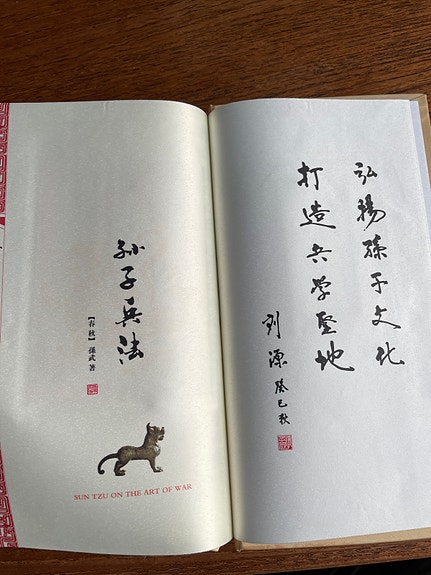 孙子兵法
【春秋】孫武著
SUN TZU ON THE ART OF WAR
弘揚孫子文化
打造兵学聖地
刘源 癸巳秋